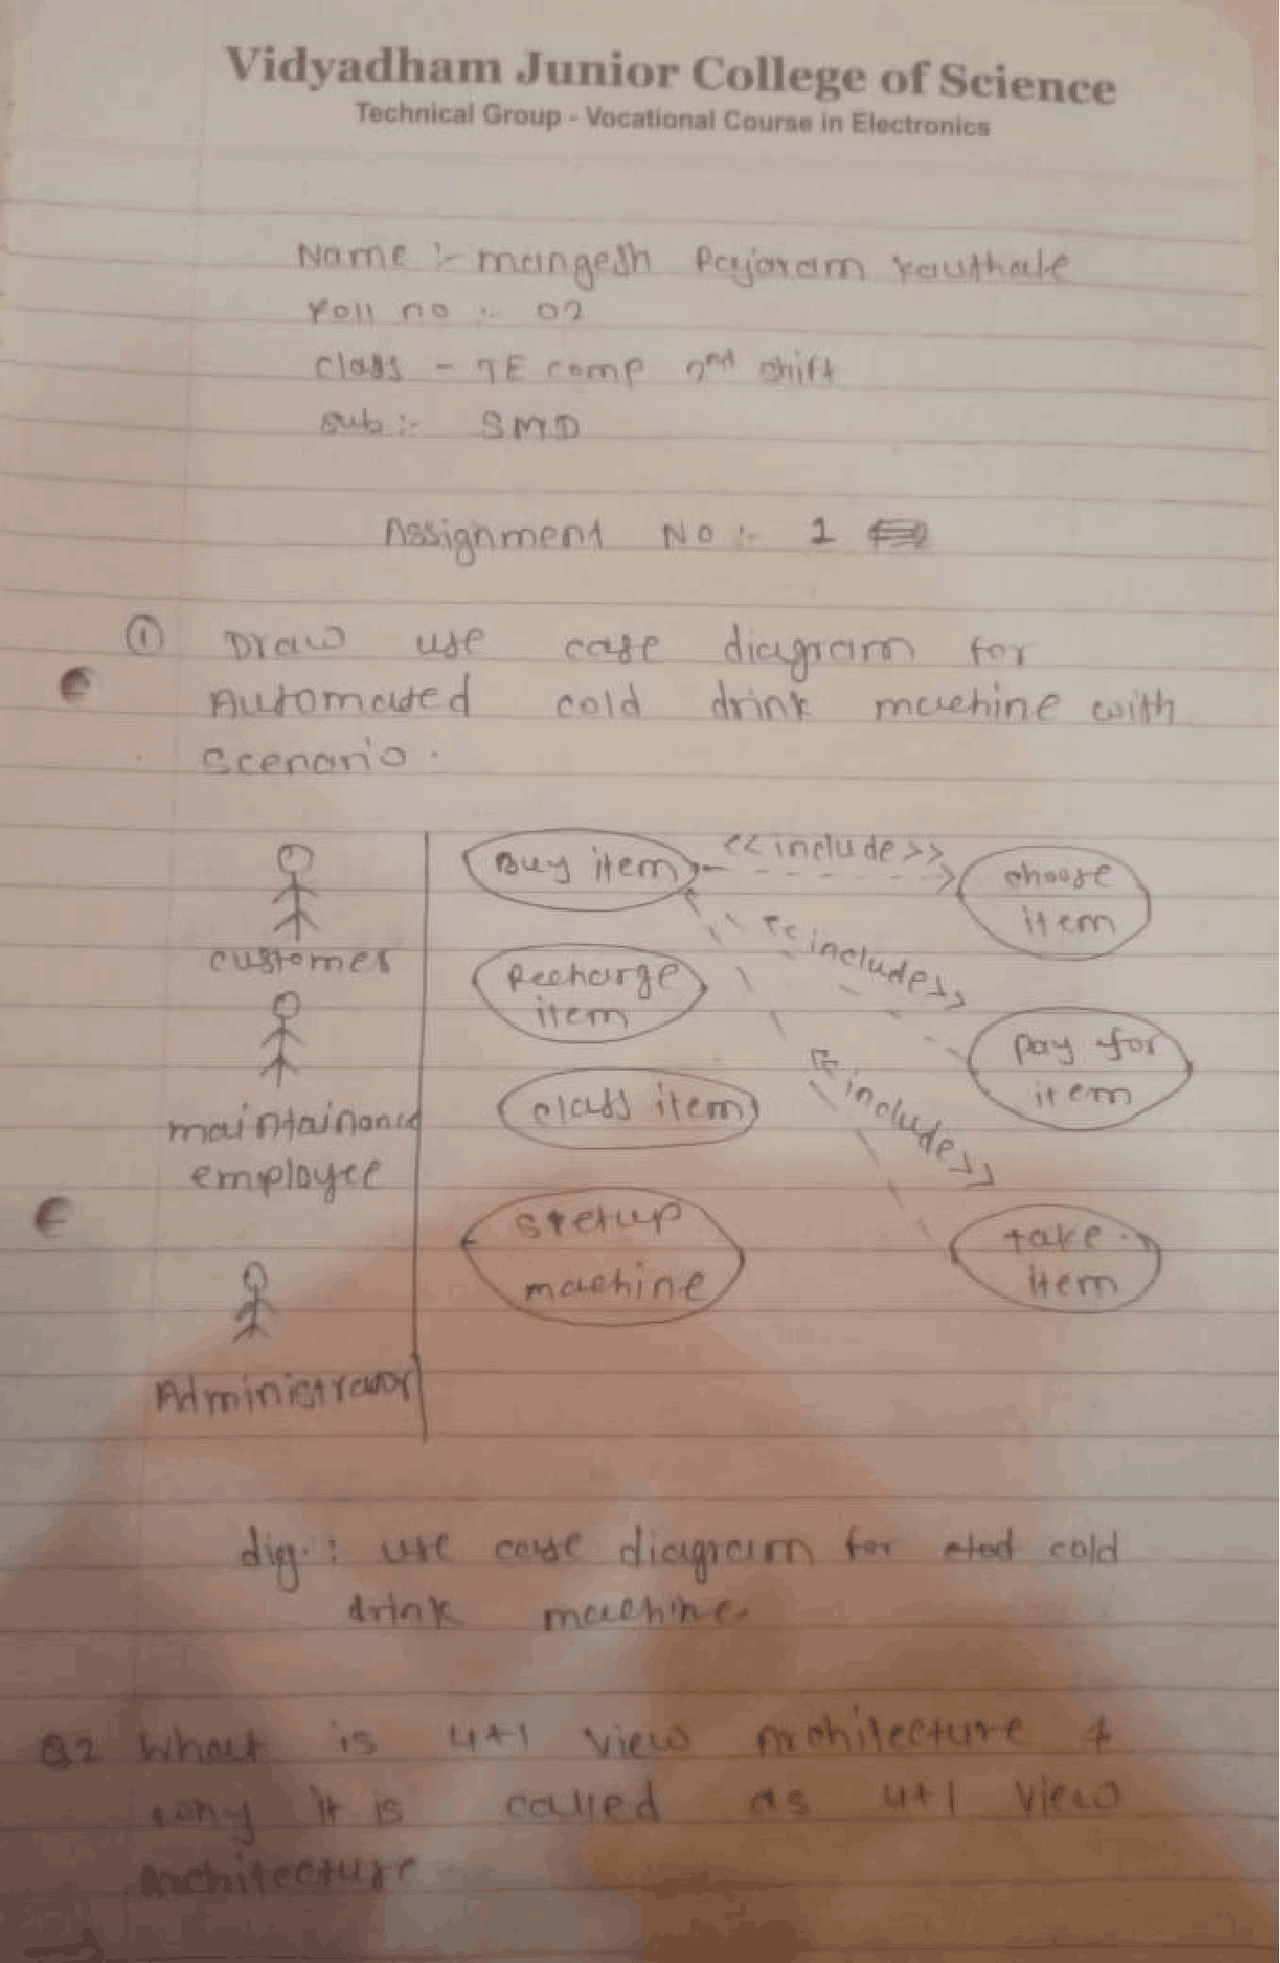 Vidyadham Junior College of Science
Technical Group - Vocational Course in Electronics
Name :- mangesh Rajaram
Roll no :- 02
class - TE comp 2nd shift
sub :- SMD
Assignment No :- 1
① Draw use case diagram for
Automated cold drink machine with
scenario.
customer
maintainance
employee
Administrator
Buy item
<<include>>
choose
item
<<include>>
Recharge
item
pay for
item
<<include>>
class item
stetup
machine
take
item
dig. : use case diagram for cold
drink machine.
Q2 What is 4+1 view Architecture &
why it is called as 4+1 view
Architecture